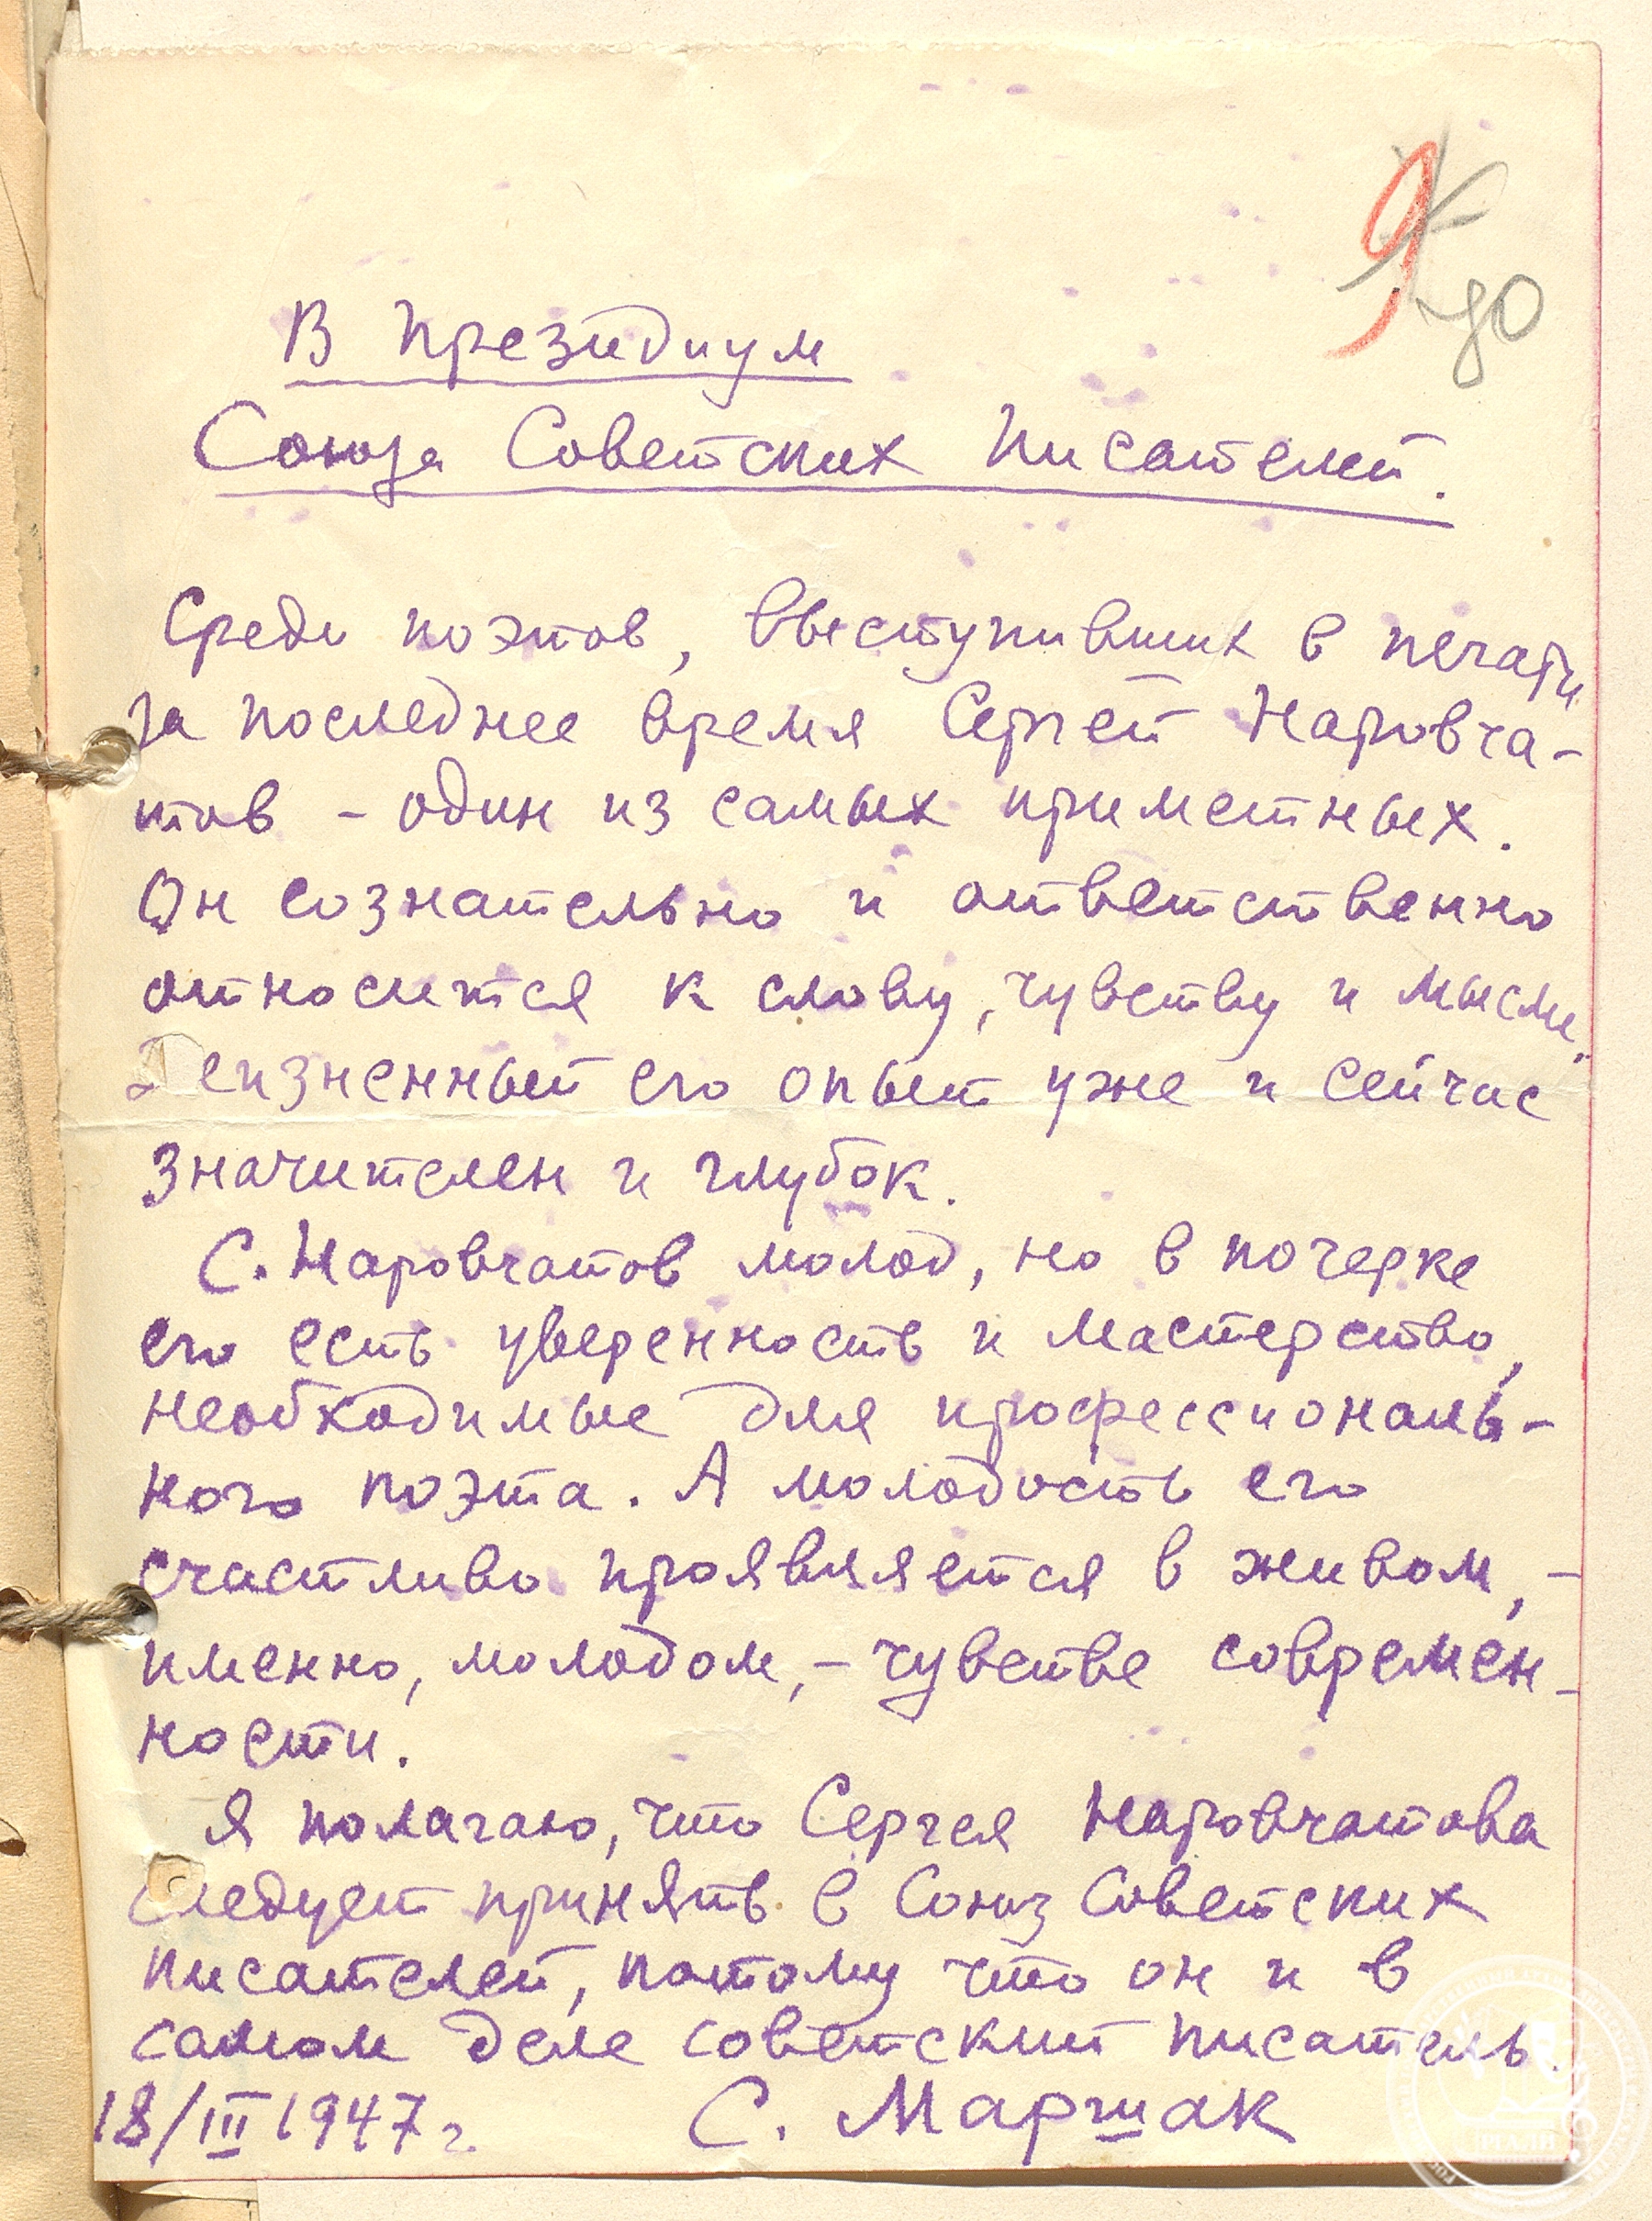 В Президиум
Союза Советских Писателей.
Среди поэтов, выступивших в печати
за последнее время Сергей Наровча-
тов - один из самых приметных.
Он сознательно и ответственно
относится к слову, чувству и мысли.
Жизненный его опыт уже и сейчас
значителен и глубок.
С. Наровчатов молод, но в почерке
его есть уверенность и мастерство,
необходимые для профессиональ-
ного поэта. А молодость его
счастливо проявляется в живом, -
именно, молодом, - чувстве современ-
ности.
Я полагаю, что Сергея Наровчатова
следует принять в Союз Советских
писателей, потому что он и в
самом деле советский писатель.
18/III 1947 г. С. Маршак
РГАЛИ